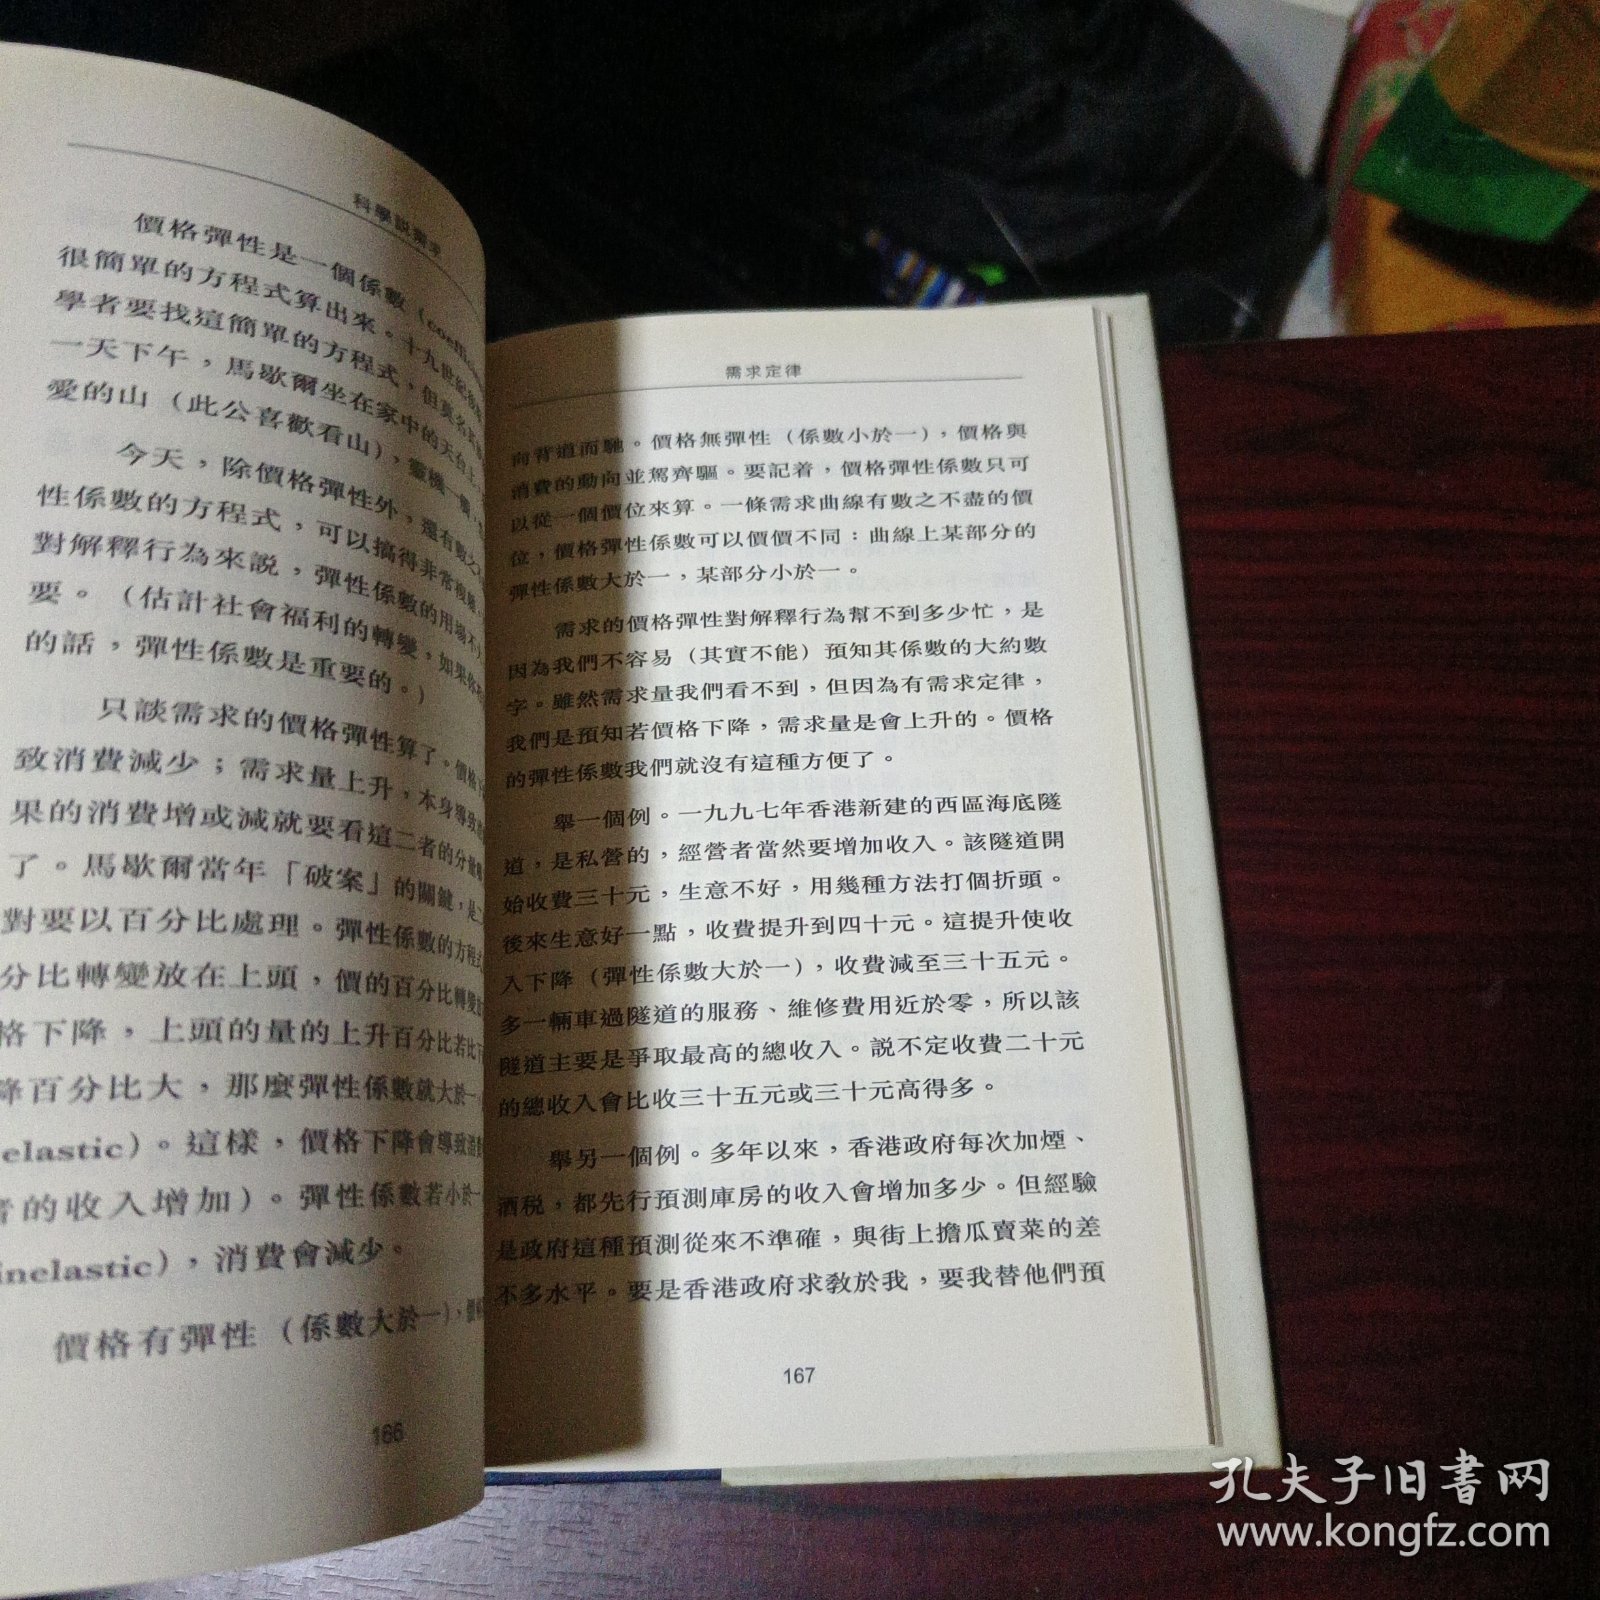 科學説需求
價格彈性是一個係數
很簡單的方程式算出來。十九世紀
學者要找這簡單的方程式，但
一天下午，馬歇爾坐在家中的天台上
愛的山（此公喜歡看山），靈機一
今天，除價格彈性外，還有數之
性係數的方程式，可以搞得非常複雜
對解釋行為來説，彈性係數的用場不
要。（估計社會福利的轉變，如果你
的話，彈性係數是重要的。）
只談需求的價格彈性算了。價格
致消費減少；需求量上升，本身導致
果的消費增或減就要看這二者的分
了。馬歇爾當年「破案」的關鍵，是
對要以百分比處理。彈性係數的方程式
分比轉變放在上頭，價的百分比轉變
格下降，上頭的量的上升百分比若比下
降百分比大，那麼彈性係數就大於一
elastic）。這樣，價格下降會導致消費
者的收入增加）。彈性係數若小於一
inelastic），消費會減少。
價格有彈性（係數大於一），價格
166
需求定律
向背道而馳。價格無彈性（係數小於一），價格與
消費的動向並駕齊驅。要記着，價格彈性係數只可
以從一個價位來算。一條需求曲線有數之不盡的價
位，價格彈性係數可以價價不同：曲線上某部分的
彈性係數大於一，某部分小於一。
需求的價格彈性對解釋行為幫不到多少忙，是
因為我們不容易（其實不能）預知其係數的大約數
字。雖然需求量我們看不到，但因為有需求定律，
我們是預知若價格下降，需求量是會上升的。價格
的彈性係數我們就沒有這種方便了。
舉一個例。一九九七年香港新建的西區海底隧
道，是私營的，經營者當然要增加收入。該隧道開
始收費三十元，生意不好，用幾種方法打個折頭。
後來生意好一點，收費提升到四十元。這提升使收
入下降（彈性係數大於一），收費減至三十五元。
多一輛車過隧道的服務、維修費用近於零，所以該
隧道主要是爭取最高的總收入。説不定收費二十元
的總收入會比收三十五元或三十元高得多。
舉另一個例。多年以來，香港政府每次加煙、
酒税，都先行預測庫房的收入會增加多少。但經驗
是政府這種預測從來不準確，與街上擔瓜賣菜的差
不多水平。要是香港政府求教於我，要我替他們預
167
孔夫子旧書网
www.kongfz.com